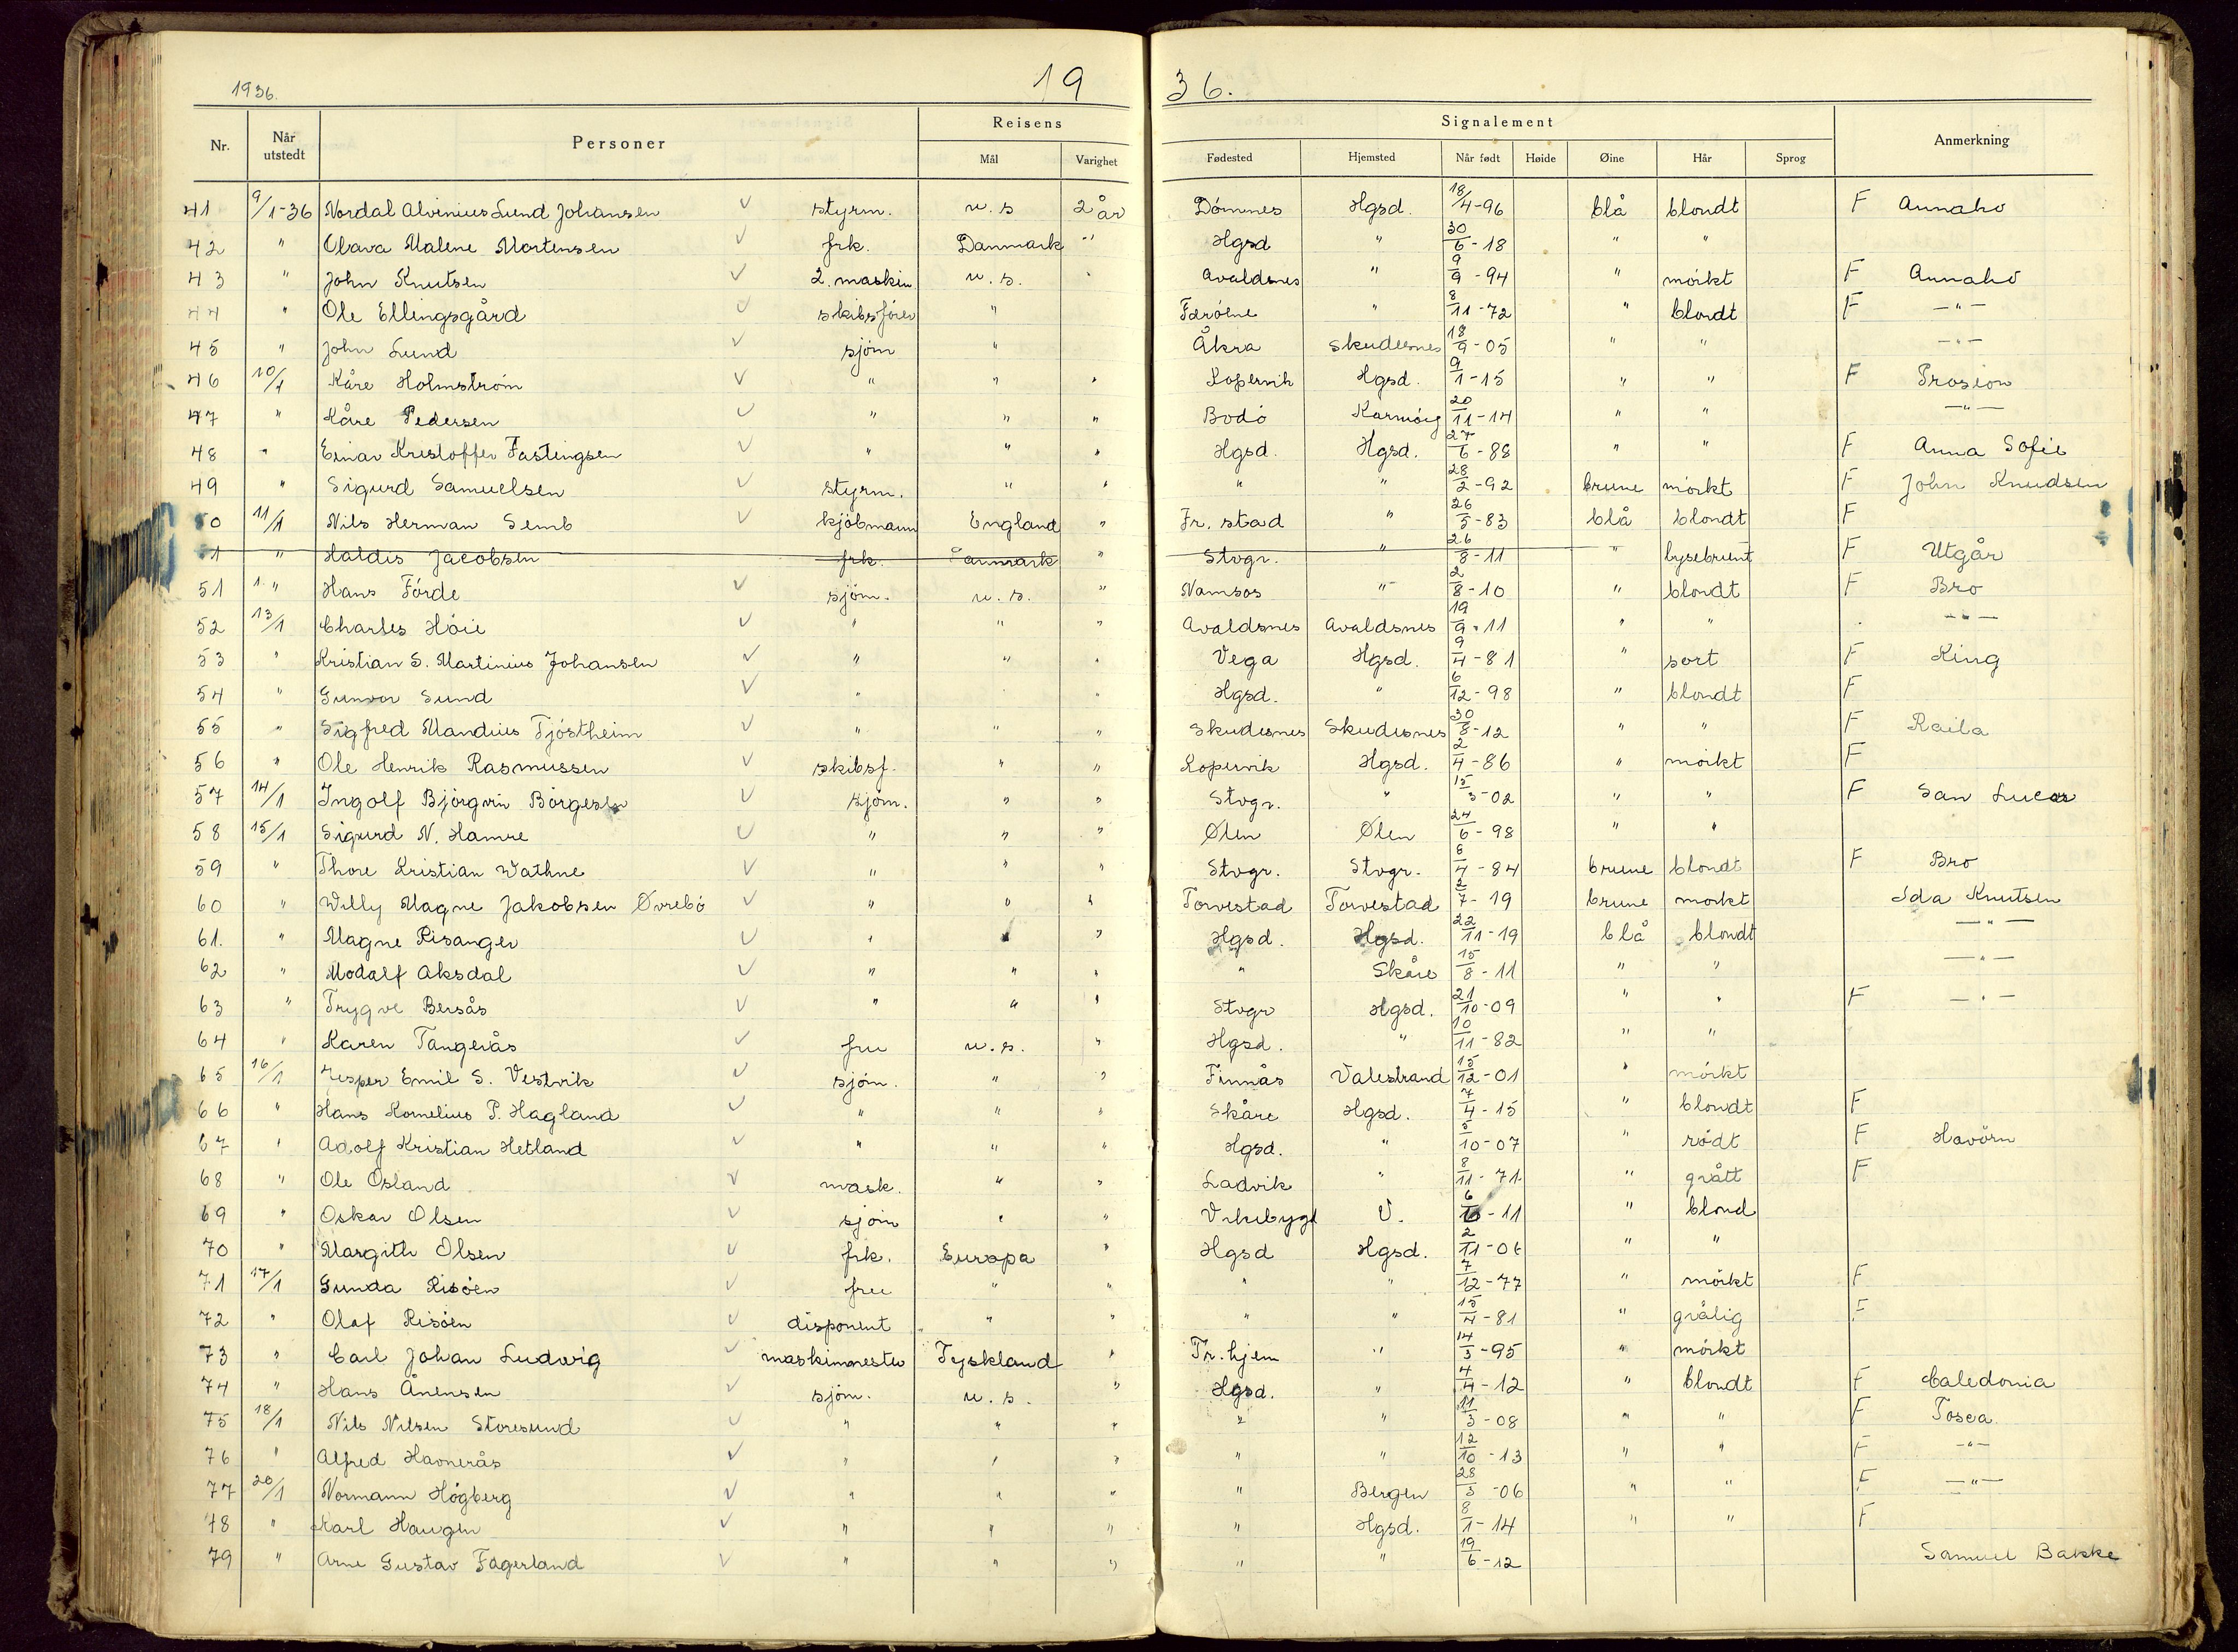 1936. 19 36.
Nr. Når utstedt Personer Reisens Signalement Anmerkning
Mål Varighet Fødested Hjemsted Når født Høide Øine Hår Sprog
41 9/1-36 Nordal Alvinius Lund Johansen styrm. u.s 2 år Dömnes Hgsd. 18/4-96 blå blondt F Annaho
42 " Olava Malene Mortensen frk. Danmark " Hgsd " 30/6-18 " "
43 " John Knutsen 2. maskin u.s. " Avaldsnes " 9/9-94 " mörkt F Annaho
44 " Ole Ellingsgård skibsförer " Færöene " 8/11-72 " blondt F -"-
45 " John Lund sjöm " Åkra Skudesnes 18/9-05 " " -"-
46 10/1 Kåre Holmström " " " Kopervik Hgsd. 9/1-15 " " F Prosion
47 " Kåre Pedersen " " " Bodö Karmöig 20/11-14 " " -"-
48 " Einar Kristoffer Fastingsen " " " Hgsd. Hgsd. 27/6-88 " " F Anna Sofie
49 " Sigurd Samuelsen styrm. " " " " 28/2-92 brune mörkt F John Knudsen
50 11/1 Nils Herman Semb kjöbmann England " Fr. stad " 26/5-83 blå blondt F
1 " Haldis Jacobsen frk. Danmark " Stvgr. " 26/8-11 " lysebrunt F Utgår
51 1 " Hans Förde sjöm. u.s. " Namsos " 2/8-10 " blondt F Bro
52 13/1 Charles Höie " " " Avaldsnes Avaldsnes 19/9-11 " " -"-
53 " Kristian S. Martinius Johansen " " " Vega Hgsd. 9/4-81 " sort F King
54 " Gunvor Sund " " " Hgsd. " 6/12-98 " blondt F
55 " Sigfred Mandius Tjöstheim " " " Skudesnes Skudesnes 30/8-12 " " F Raila
56 " Ole Henrik Rasmussen skibsf. " " Kopervik Hgsd. 2/4-86 " mörkt F
57 14/1 Ingolf Björgvin Börgesen sjöm. " " Stvgr. " 15/3-02 " " F San Lucas
58 15/1 Sigurd N. Hamre " " " Ølen Ølen 24/6-98 " "
59 " Thore Kristian Wathne " " " Stvgr. Stvgr. 8/4-84 brune blondt F Bro
60 " Willy Magne Jakobsen Øvrebö " " " Torvestad Torvestad 2/7-19 brune mörkt Ida Knutsen
61. " Magne Risanger " " " Hgsd. Hgsd. 22/11-19 blå blondt -"-
62 " Modalf Aksdal " " " " Skåre 15/8-11 " " -"-
63 " Trygve Bersås " " " Stvgr Hgsd. 21/10-09 " " F -"-
64 " Karen Tangerås fru u.s. " Hgsd. " 10/11-82 " "
65 16/1 Jesper Emil S. Vestvik sjöm. " " Finnås Valestrand 15/12-01 " mörkt
66 " Hans Kornelius P. Hagland " " " Skåre Hgsd. 7/4-15 " blondt F
67 " Adolf Kristian Hetland " " " Hgsd. " 5/10-07 " rödt F Havörn
68 " Ole Osland mask. " " Ladvik " 8/11-71 " grått F
69 " Oskar Olsen sjöm " " Vikebygd V. 6/-11 " blond
70 " Margith Olsen frk. Europa " Hgsd Hgsd. 2/11-06 " "
71 17/1 Gunda Risöen fru " " " " 7/12-77 " mörkt F
72 " Olaf Risöen disponent " " " " 15/4-81 " grålig F
73 " Carl Johan Ludwig maskinmester Tyskland " Tr. hjem " 14/3-95 " mörkt
74 " Hans Ånensen sjöm. u.s. " Hgsd. " 4/4-12 " blondt F Caledonia
75 18/1 Nils Nilsen Storesund " " " " " 11/3-08 " " F Tosca
76 " Alfred Havnerås " " " " " 12/10-13 " " F -"-
77 20/1 Normann Högberg " " " " Bergen 28/3-06 " " F -"-
78 " Karl Haugen " " " " Hgsd. 8/1-14 " " F
79 " Arne Gustav Fagerland " " " " " 19/6-12 Samuel Bakke